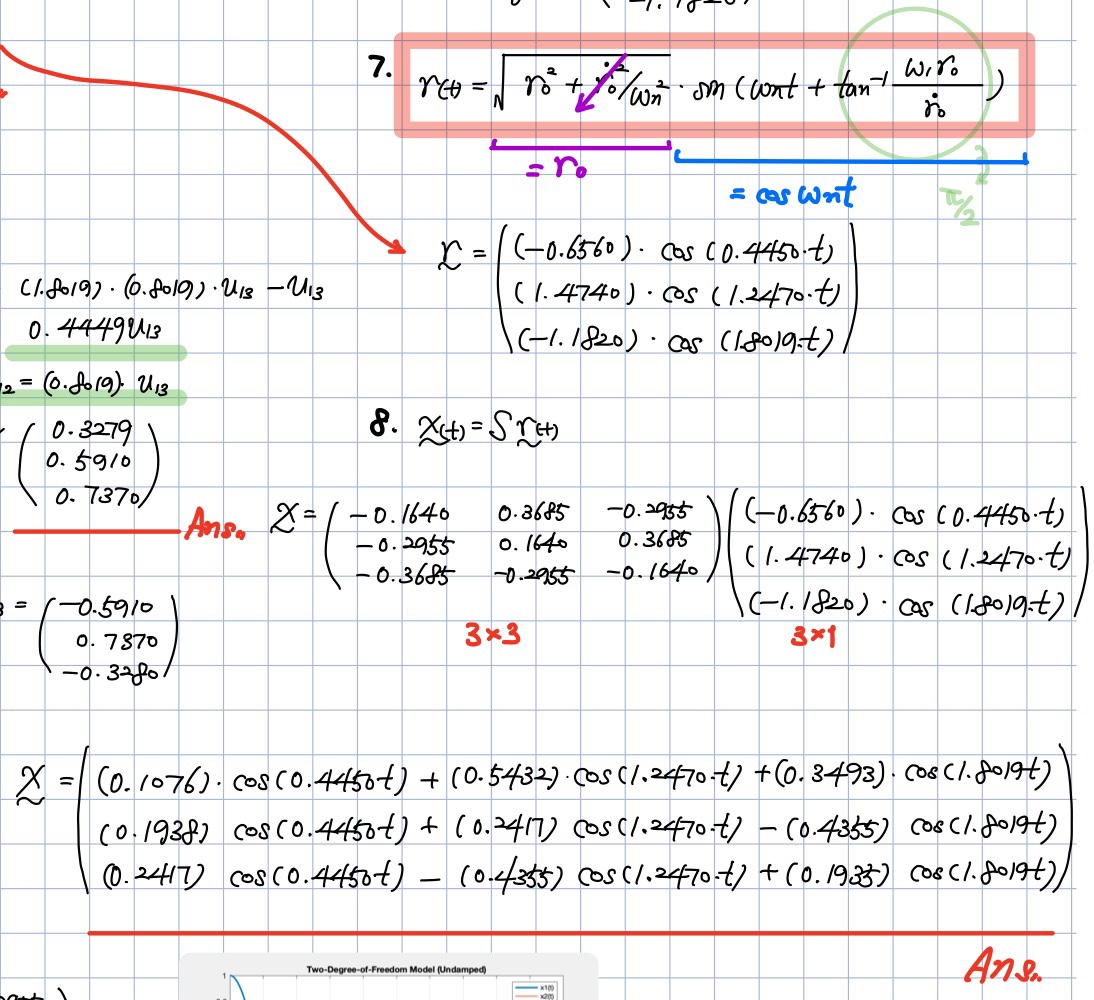 7. r(t) = √(r₀² + ṙ₀²/ωn²) · sin (ωnt + tan⁻¹ ω₁r₀/ṙ₀)
= r₀
= cos ωnt
π/2
r = ((-0.6560) · cos (0.4450·t)
(1.4740) · cos (1.2470·t)
(-1.1820) · cos (1.8019·t))
(1.8019) · (0.8019) · u₁₃ − u₁₃
0.4449u₁₃
₂ = (0.8019) · u₁₃
(0.3279
0.5910
0.7370)
Ans.
8. x(t) = S r(t)
x = (-0.1640 0.3685 -0.2955
-0.2955 0.1640 0.3685
-0.3685 -0.2955 -0.1640)
((-0.6560) · cos (0.4450·t)
(1.4740) · cos (1.2470·t)
(-1.1820) · cos (1.8019·t))
3×3
3×1
₃ = (-0.5910
0.7370
-0.3280)
x = ((0.1076) · cos(0.4450t) + (0.5432) · cos(1.2470·t) + (0.3493) · cos(1.8019t)
(0.1938) cos(0.4450t) + (0.2417) cos(1.2470·t) − (0.4355) cos(1.8019t)
(0.2417) cos(0.4450t) − (0.4355) cos(1.2470·t) + (0.1935) cos(1.8019t))
Ans.
Two-Degree-of-Freedom Model (Undamped)
1
x1(t)
x2(t)